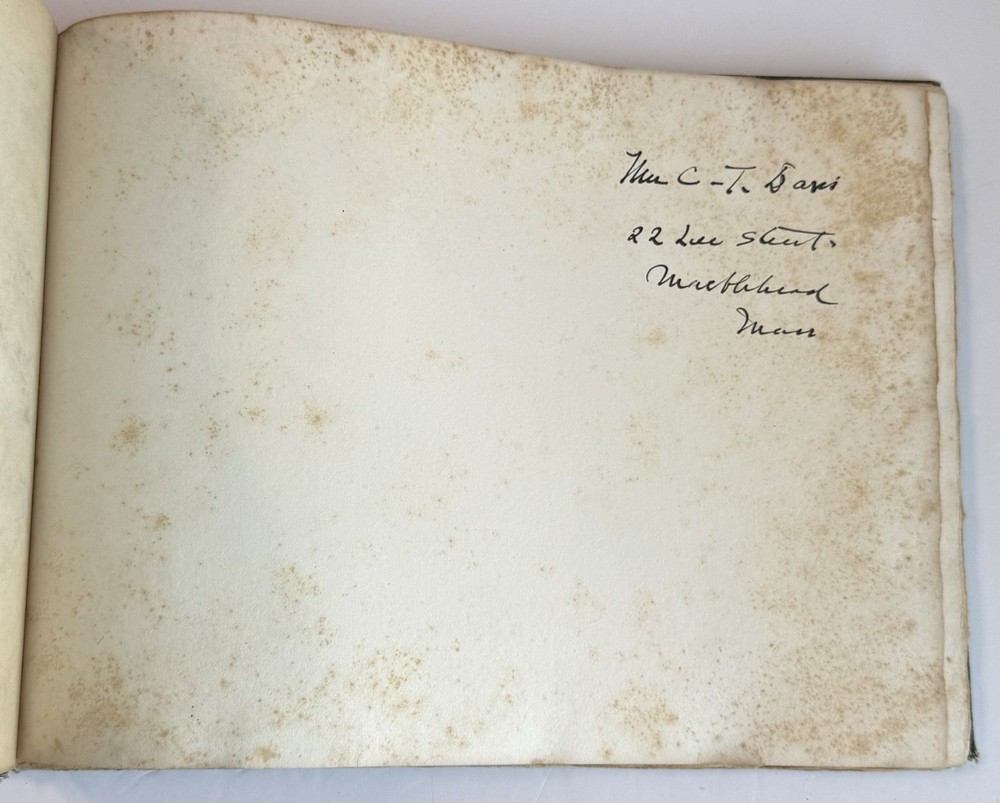 C-T. Davis
22 Lee Street.
Marblehead
Mass